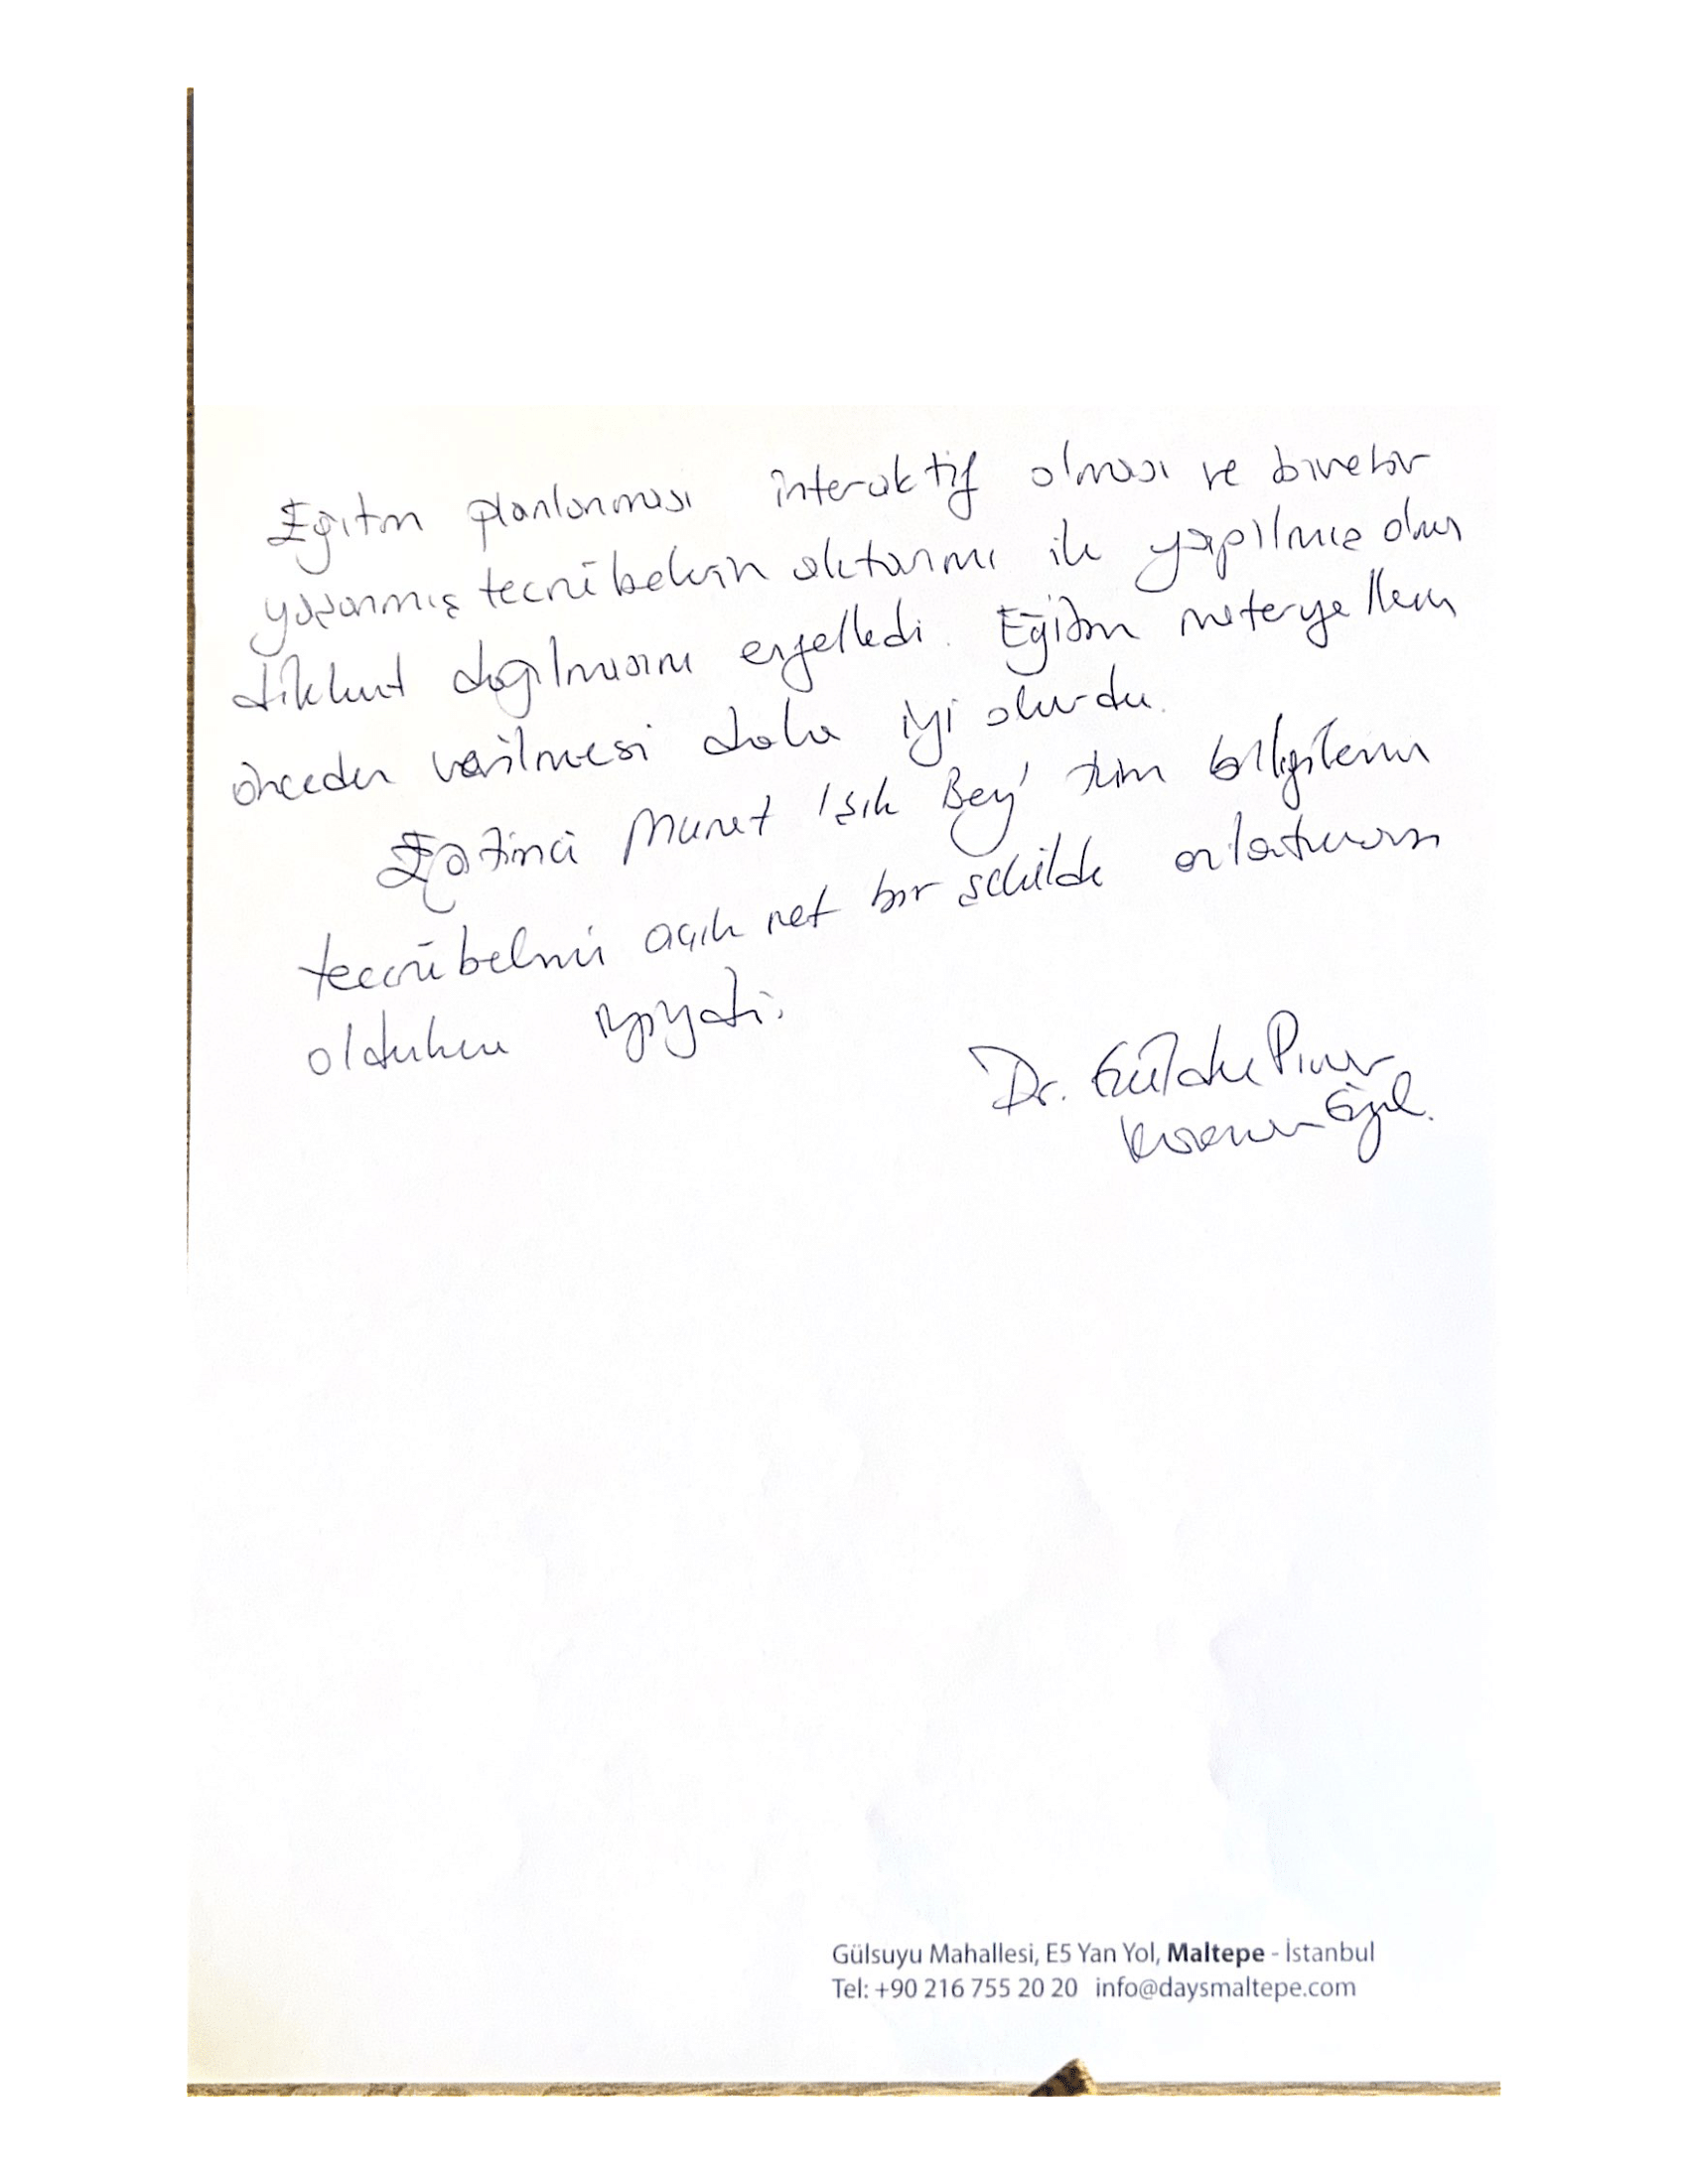 Eğitim planlanması interaktif olması ve birebir
yaşanmış tecrübelerin aktarımı ile yapılmış olması
dikkat dağılmasını engelledi. Eğitim meteryallerin
önceden verilmesi daha iyi olurdu.
Eğitimci Murat Işık Bey' tüm bilgilerini
tecrübelerini açık net bir şekilde anlatması
oldukça iyiydi.
Dr. Pınar
Gülsuyu Mahallesi, E5 Yan Yol, Maltepe - İstanbul
Tel: +90 216 755 20 20 info@daysmaltepe.com